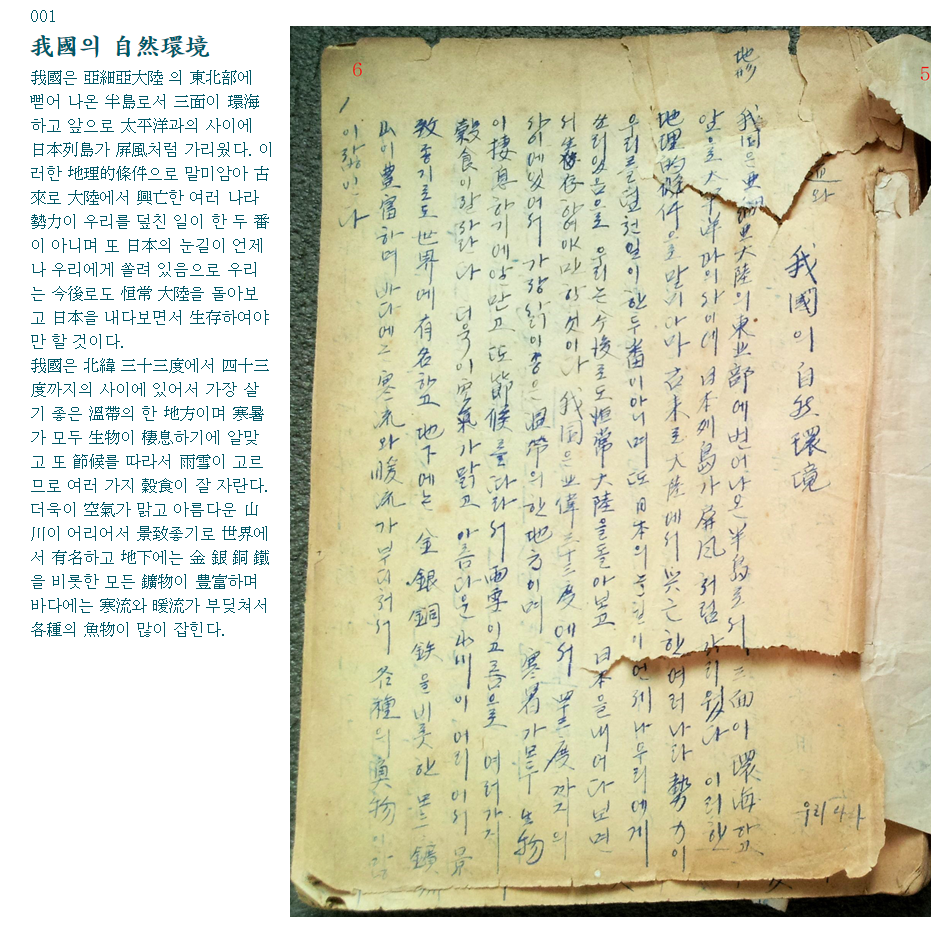 001
我國의 自然環境
我國은 亞細亞大陸 의 東北部에
뻗어 나온 半島로서 三面이 環海
하고 앞으로 太平洋과의 사이에
日本列島가 屛風처럼 가리웠다. 이
러한 地理的條件으로 말미암아 古
來로 大陸에서 興亡한 여러 나라
勢力이 우리를 덮친 일이 한 두 番
이 아니며 또 日本의 눈길이 언제
나 우리에게 쏠려 있음으로 우리
는 今後로도 恒常 大陸을 돌아보
고 日本을 내다보면서 生存하여야
만 할 것이다.
我國은 北緯 三十三度에서 四十三
度까지의 사이에 있어서 가장 살
기 좋은 溫帶의 한 地方이며 寒暑
가 모두 生物이 棲息하기에 알맞
고 또 節候를 따라서 雨雪이 고르
므로 여러 가지 穀食이 잘 자란다.
더욱이 空氣가 맑고 아름다운 山
川이 어리어서 景致좋기로 世界에
서 有名하고 地下에는 金 銀 銅 鐵
을 비롯한 모든 鑛物이 豊富하며
바다에는 寒流와 暖流가 부딪쳐서
各種의 魚物이 많이 잡힌다.
5
6
우리나라
我國의 自然環境
我国은 亞細亞大陸의 東北部에 벋어나온 半島로서 三面이 環海하고
앞으로 太平洋과의 사이에 日本列島가 屛風처럼 가리웠다 이러한
地理的條件으로 말미아마 古来로 大陸에서 興亡한 여러나라 勢力이
우리를 덮친일이 한두番이아니며 또 日本의 눈길이 언제나 우리에게
쏠려있음으로 우리는 今後로도 恒常 大陸을 돌아보고 日本을 내어다보면
서 生存하여야만 할것이다 我国은 北偉 三十三度에서 四十三度까지의
사이에있어서 가장 살기좋은 温帶의 한 地方이며 寒暑가 모두 生物
이 棲息하기에 알맞고 또 節候를 따라서 雨雪이 고름으로 여러가지
穀食이 잘 자란다 더욱이 空氣가 맑고 아름다운 山川이 어리어서 景
致좋기로도 世界에 有名하고 地下에는 金銀銅鉄을 비롯한 모든 鑛物
山이 豊富하며 바다에는 寒流와 暖流가 부디처서 各種의 魚物이 많
이 잡힌다